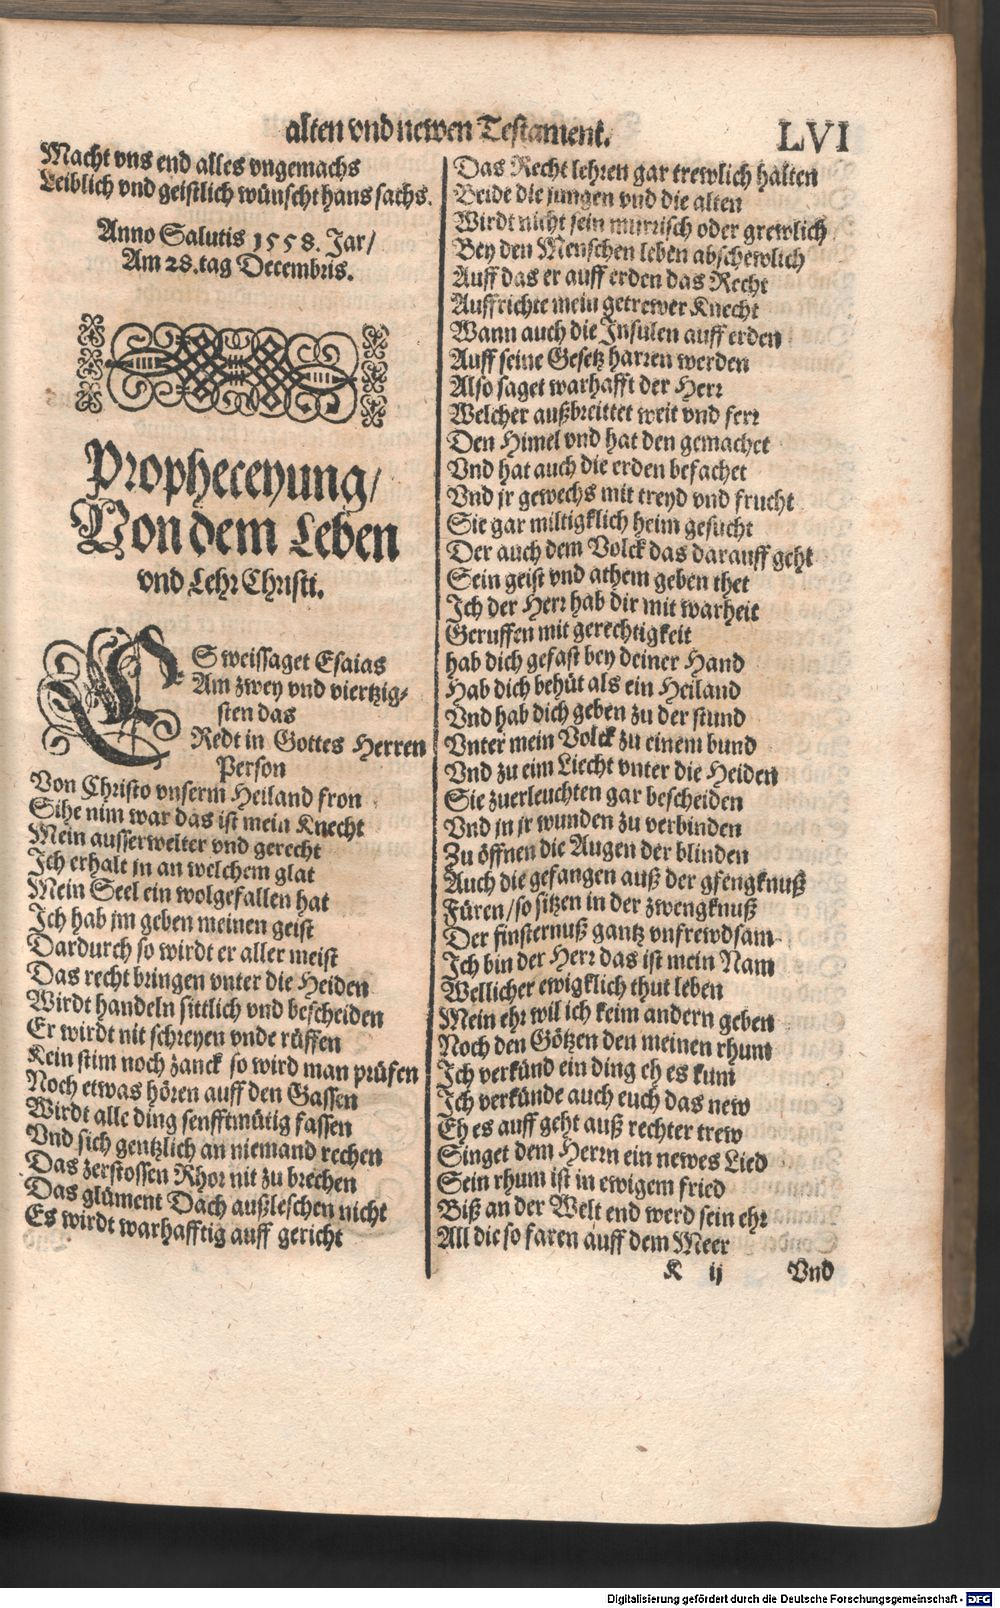 alten vnd newen Testament.
LVI
Macht vns end alles vngemachs
Leiblich vnd geistlich wünscht hans sachs.
Anno Salutis 1558. Jar/
Am 28. tag Decembris.
Propheceyung/
Von dem Leben
vnd Lehr Christi.
ES weissaget Esaias
Am zwey vnd viertzig-
sten das
Redt in Gottes Herren
Person
Von Christo vnserm Heiland fron
Sihe nim war das ist mein Knecht
Mein ausserwelter vnd gerecht
Ich erhalt jn an welchem glat
Mein Seel ein wolgefallen hat
Ich hab jm geben meinen geist
Dardurch so wirdt er aller meist
Das recht bringen vnter die Heiden
Wirdt handeln sittlich vnd bescheiden
Er wirdt nit schreyen vnde rüffen
Kein stim noch zanck so wird man prüfen
Noch etwas hören auff den Gassen
Wirdt alle ding senfftmütig fassen
Vnd sich gentzlich an niemand rechen
Das zerstossen Rhor nit zu brechen
Das glüment Dach außleschen nicht
Es wirdt warhafftig auff gericht
Das Recht lehren gar trewlich halten
Beide die jungen vnd die alten
Wirdt nicht sein murrisch oder grewlich
Bey den Menschen leben abschewlich
Auff das er auff erden das Recht
Auffrichte mein getrewer Knecht
Wann auch die Insulen auff erden
Auff seine Gesetz harren werden
Also saget warhafft der Herr
Welcher außbreittet weit vnd ferr
Den Himel vnd hat den gemachet
Vnd hat auch die erden befachet
Vnd jr gewechs mit treyd vnd frucht
Sie gar miltigklich heim gesucht
Der auch dem Volck das darauff geht
Sein geist vnd athem geben thet
Ich der Herr hab dir mit warheit
Geruffen mit gerechtigkeit
hab dich gefast bey deiner Hand
Hab dich behüt als ein Heiland
Vnd hab dich geben zu der stund
Vnter mein Volck zu einem bund
Vnd zu eim Liecht vnter die Heiden
Sie zuerleuchten gar bescheiden
Vnd jn jr wunden zu verbinden
Zu öffnen die Augen der blinden
Auch die gefangen auß der gfengknuß
Füren/ so sitzen in der zwengknuß
Der finsternuß gantz vnfrewdsam
Ich bin der Herr das ist mein Nam
Wellicher ewigklich thut leben
Mein ehr wil ich keim andern geben
Noch den Götzen den meinen rhum
Ich verkünd ein ding eh es kum
Ich verkünde auch euch das new
Eh es auff geht auß rechter trew
Singet dem Herrn ein newes Lied
Sein rhum ist in ewigem fried
Biß an der Welt end werd sein ehr
All die so faren auff dem Meer
K ij
Vnd
Digitalisierung gefördert durch die Deutsche Forschungsgemeinschaft - DFG